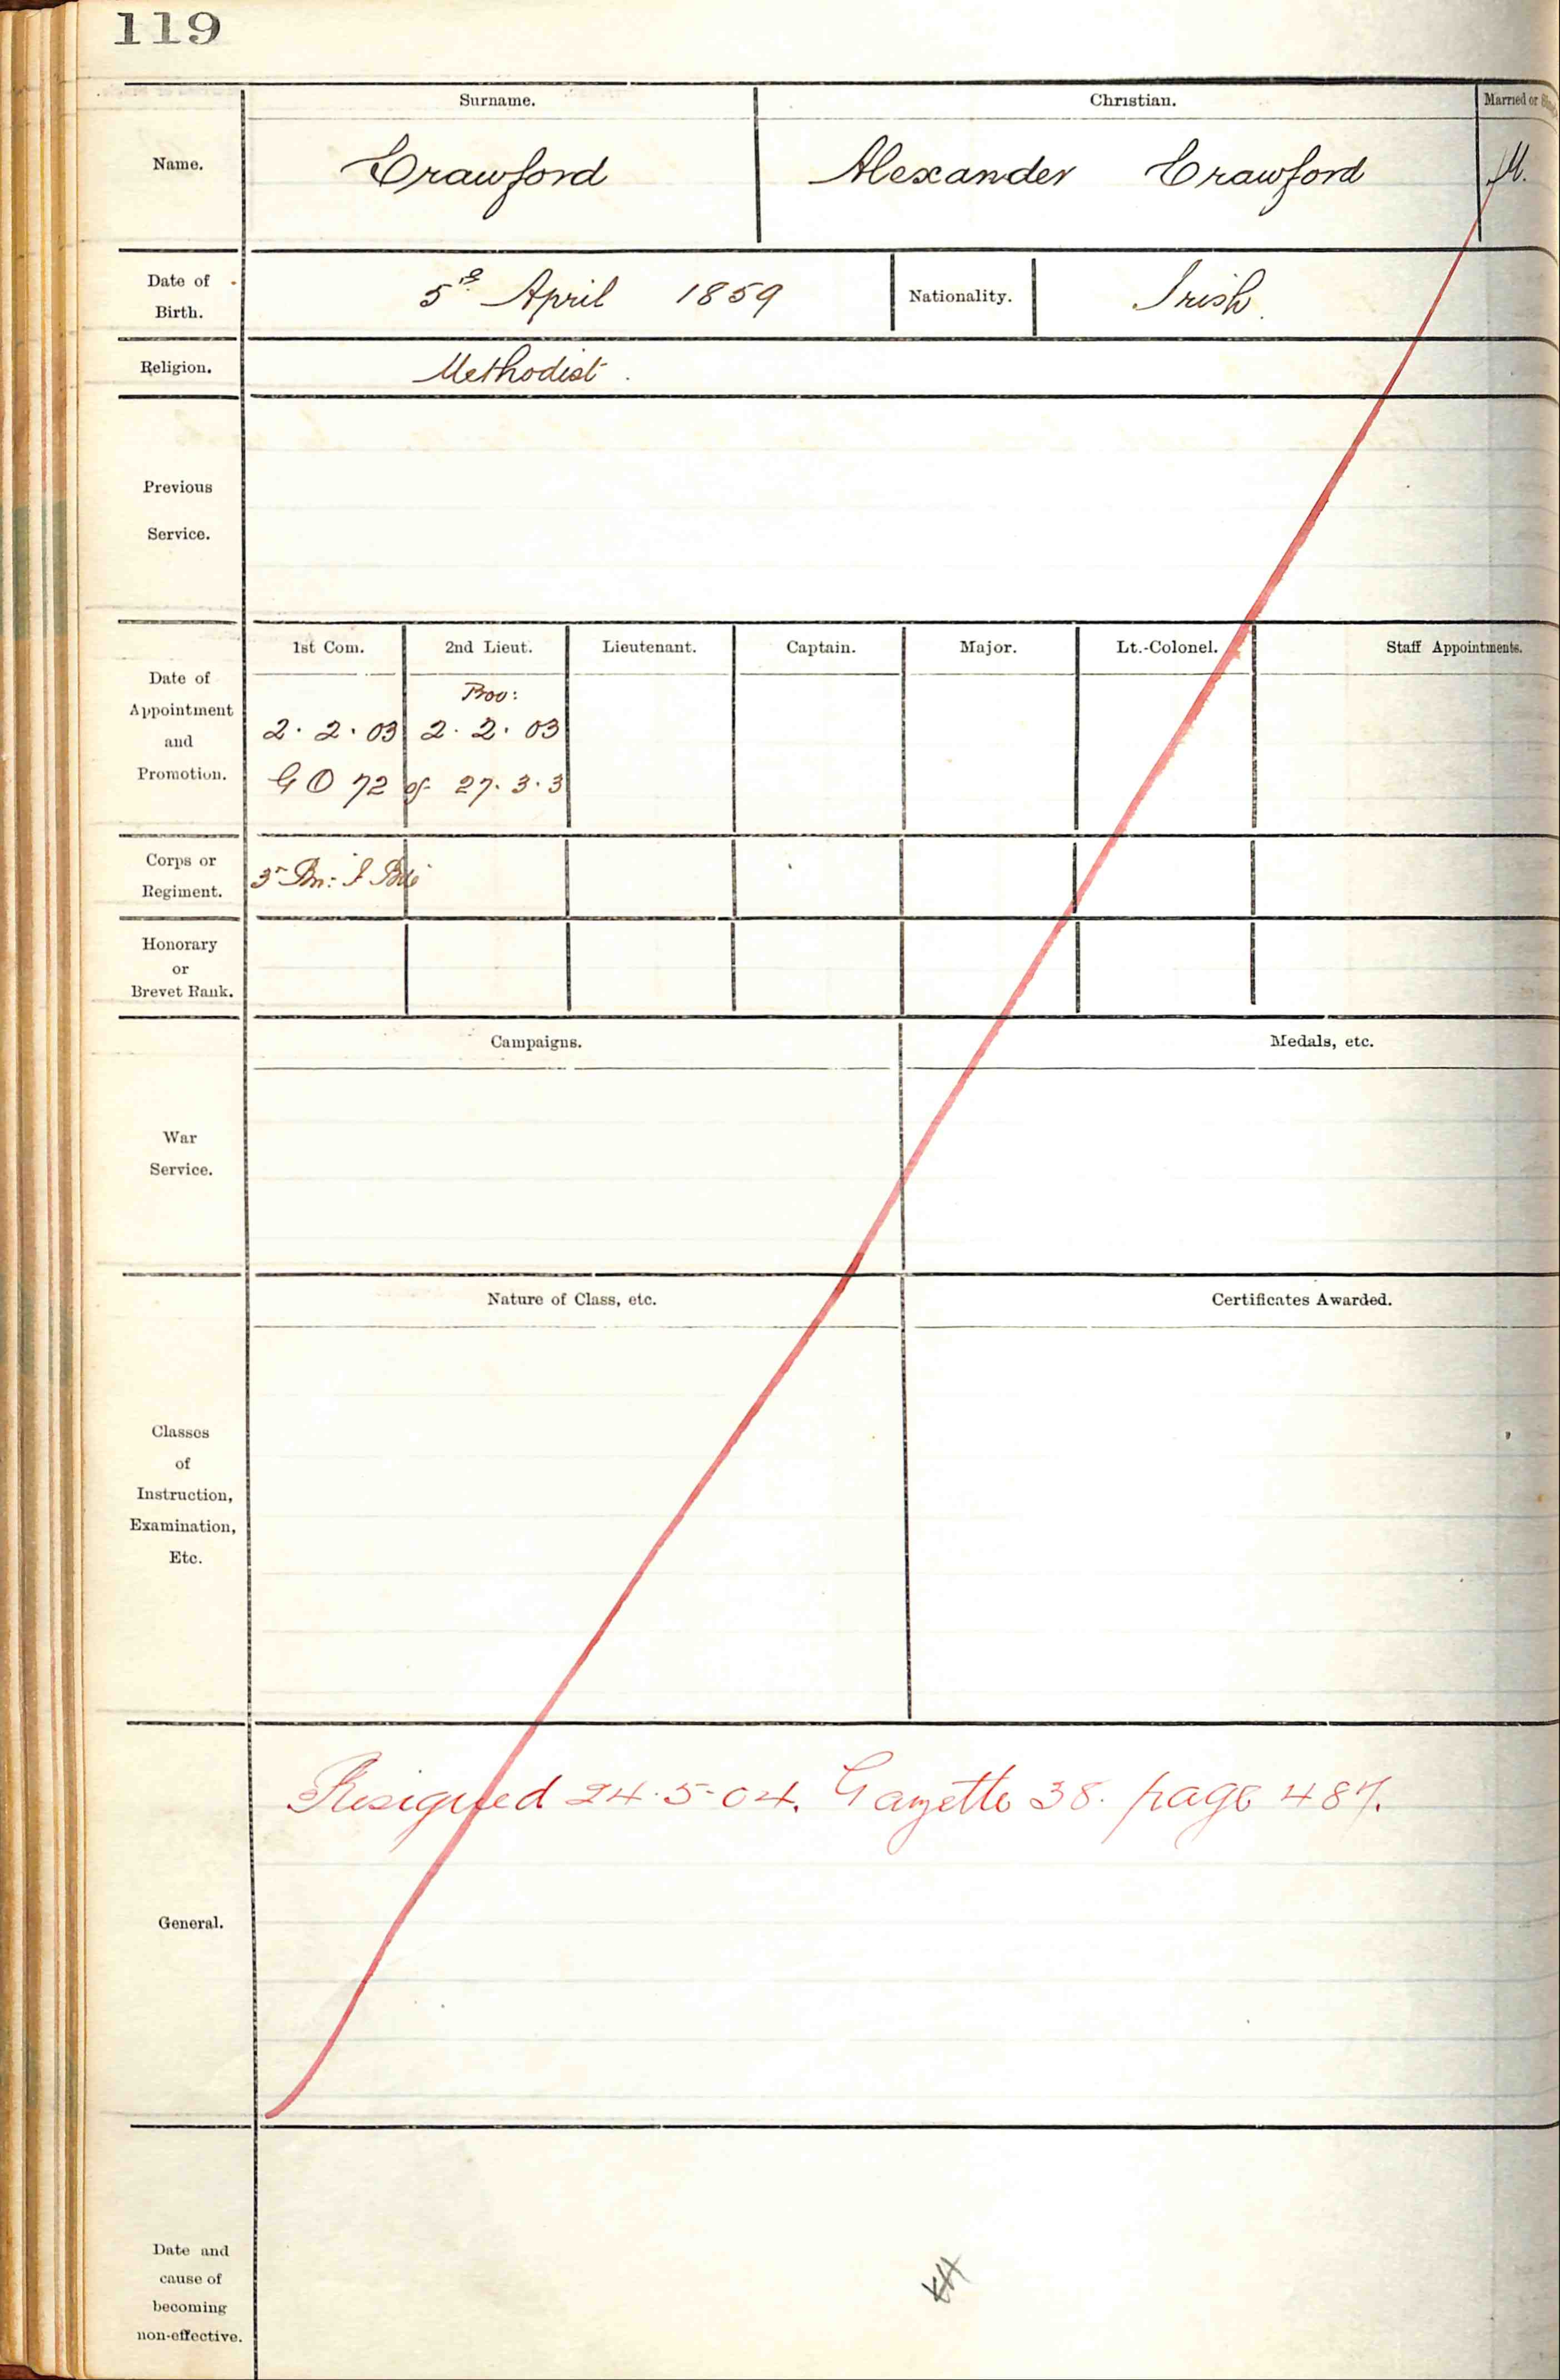 119
Surname.
Christian.
Married or
Name.
Crawford
Alexander Crawford
M.
Date of
Birth.
5th April 1859
Nationality.
Irish
Religion.
Methodist
Previous
Service.
1st Com.
2nd Lieut.
Lieutenant.
Captain.
Major.
Lt.-Colonel.
Staff Appointments.
Date of
Appointment
and
Promotion.
Prov:
2. 2. 03
2. 2. 03
G O 72 of 27. 3. 3
Corps or
Regiment.
Bn:
Honorary
or
Brevet Rank.
Campaigns.
Medals, etc.
War
Service.
Nature of Class, etc.
Certificates Awarded.
Classes
of
Instruction,
Examination,
Etc.
Resigned 24.5-04. Gazette 38. page 487.
General.
Date and
cause of
becoming
non-effective.